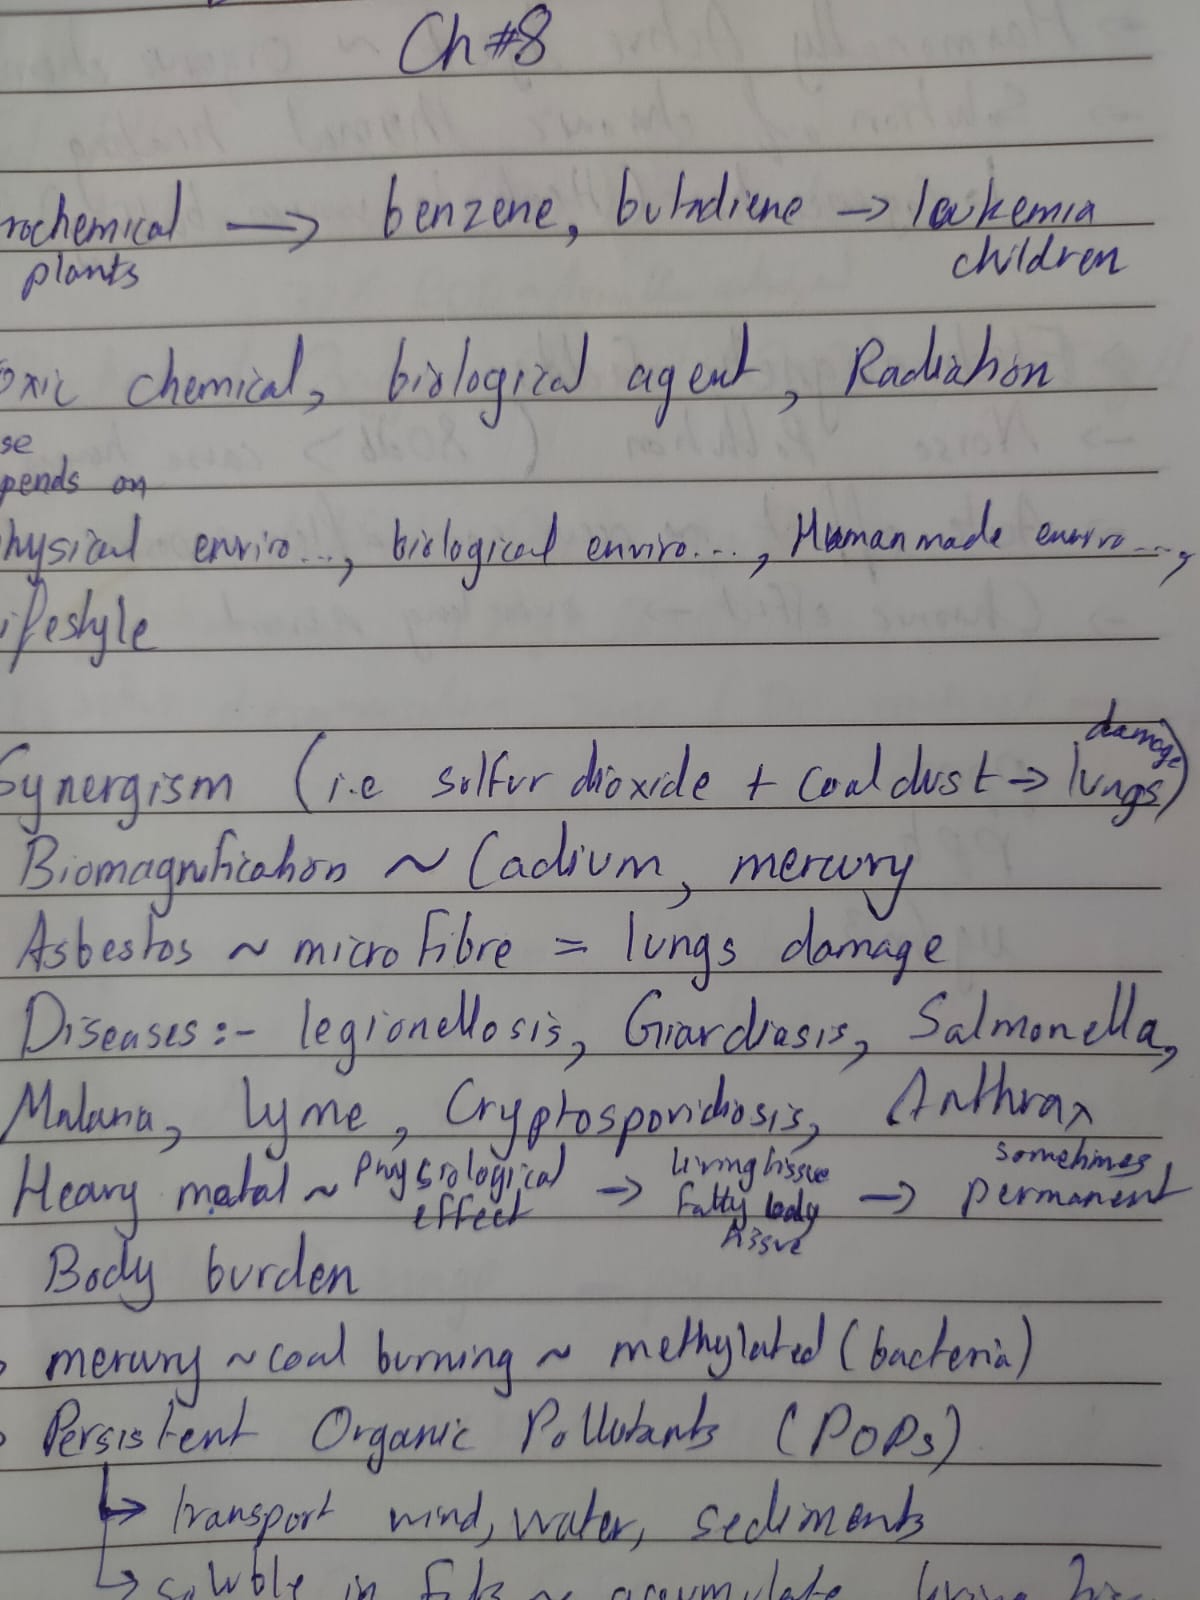 Ch #8
rochemical → benzene, butadiene → leukemia
plants children
oxic chemical, biological agent, Radiation
se
pends on
hysical enviro..., biological enviro..., Human made enviro...,
ifestyle
damage
Synergism (i.e sulfur dioxide + coal dust → lungs)
Biomagnification ~ Cadium, mercury
Asbestos ~ micro fibre = lungs damage
Diseases:- legionellosis, Giardiasis, Salmonella,
Malaria, lyme, Cryptosporidiosis, Anthrax
Heavy metal ~ physiological effect → living tissue fatty body tissue → sometimes permanent
Body burden
mercury ~ coal burning ~ methylated (bacteria)
Persistent Organic Pollutants (POPs)
↳ transport wind, water, sediments
↳ soluble in fats ~ accumulate living